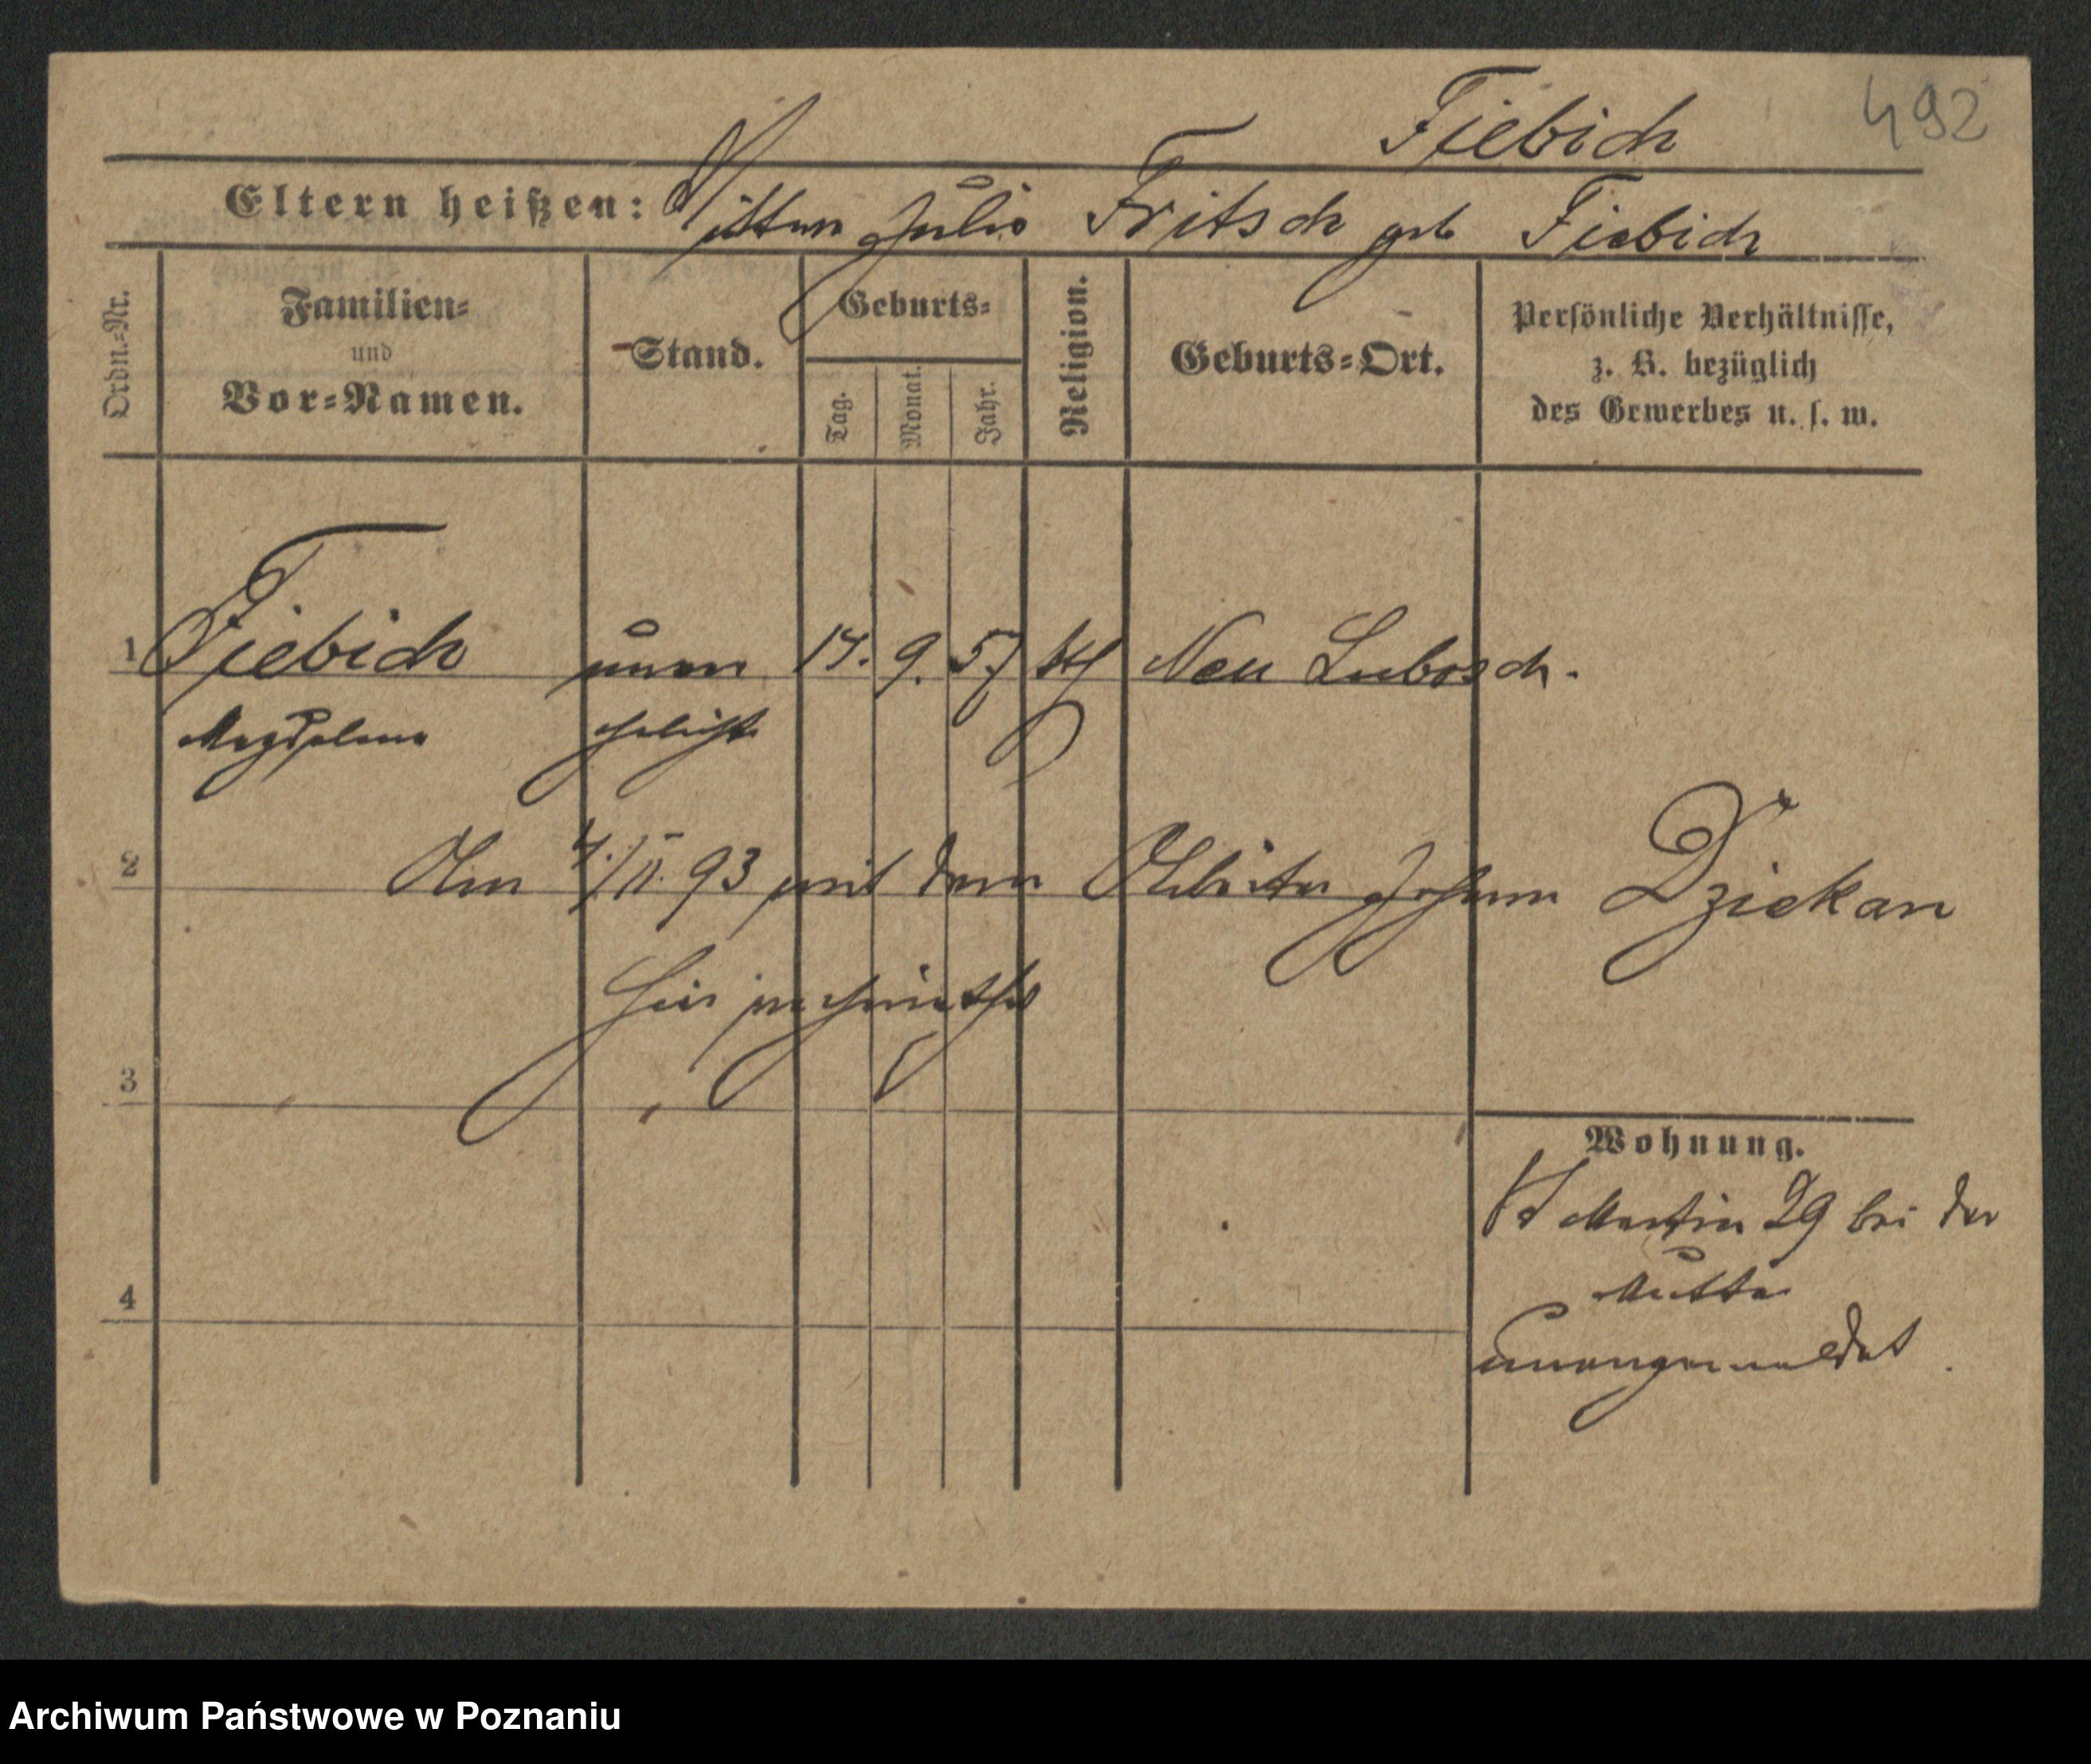 492
Fiebich
Eltern heißen: Wittwe Julie Fritsch geb Fiebich
Ordn.-Nr.
Familien-
und
Vor-Namen.
Stand.
Geburts-
Tag.
Monat.
Jahr.
Religion.
Geburts-Ort.
Persönliche Verhältnisse,
z. B. bezüglich
des Gewerbes u. s. w.
1 Fiebich unver 14. 9. 57 kth Neu Lubosch.
Magdalena ehelicht
2 Am 4./II. 93 mit dem Arbeiter Johann Dziekan
hier
3
Wohnung.
St Martin 29 bei der
Mutter
4
unangemeldet.
Archiwum Państwowe w Poznaniu